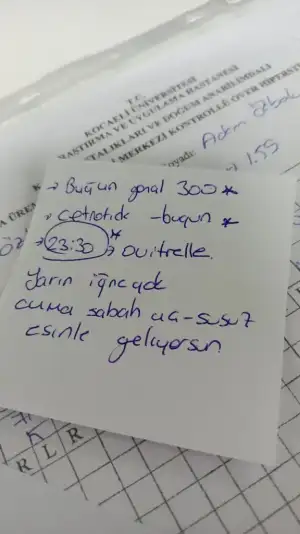 T.C.
KOCAELİ ÜNİVERSİTESİ
ARAŞTIRMA VE UYGULAMA HASTANESİ
HASTALIKLARI VE DOĞUM ANABİLİMDALI
MERKEZİ KONTROLLÜ OVER HİPERSTİ
oyadı: Adem Özbek
1.55
→ Bugün gonal 300 *
• Cetrotide - bugun *
→ 23:30 * → ovitrelle.
Yarın iğne yok
cuma sabah aç-susuz
esinle geliyorsun
R L R